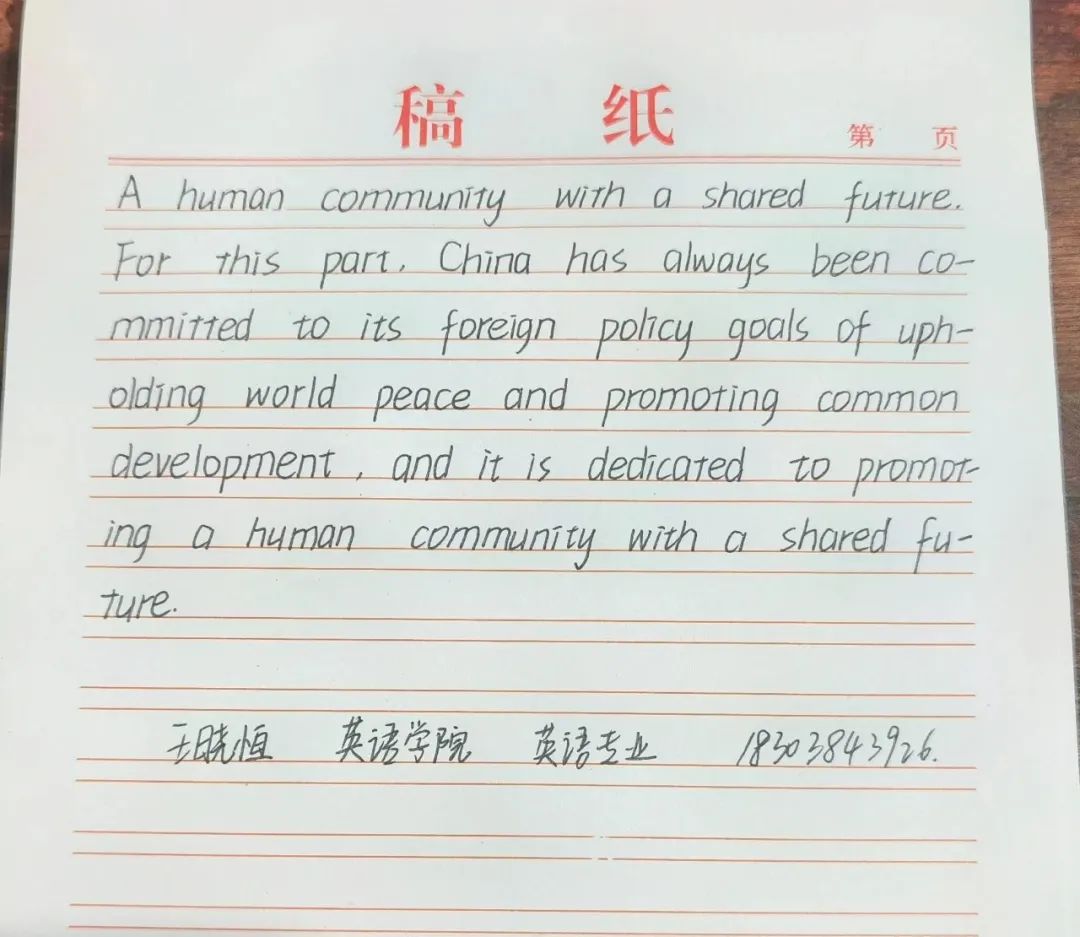 稿 纸
第 页
A human community with a shared future.
For this part, China has always been co-
mmitted to its foreign policy goals of uph-
olding world peace and promoting common
development, and it is dedicated to promot-
ing a human community with a shared fu-
ture.
王晓恒 英语学院 英语专业 18303843926.